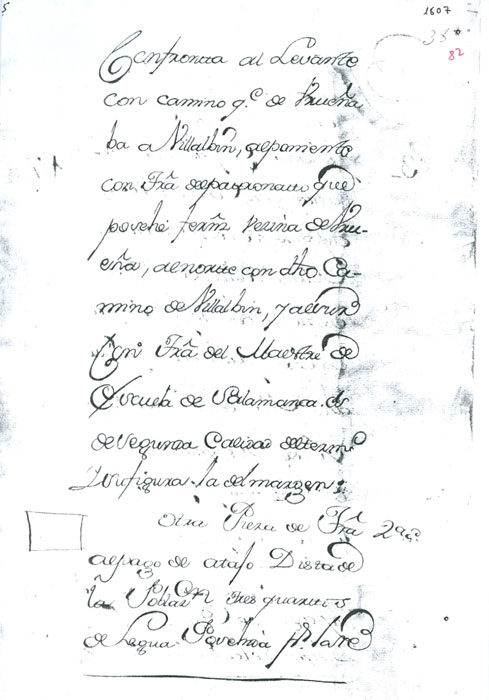 1607
35
82
Confronta al Levante
con camino q.e de Brueña
ba a Villalbin, alponiente
con Trã del patronato que
poséhé ferñz vezina de Bru-
eña, alnorte con dho Ca-
mino de Villalbin, y alsur
Con Trã del Maestre de
Escuela de Salamanca. es
de segunda Calidad deltermº
Su figura la del margen:
Otra Pieza de Trã 2ª
alpago de atajo Dista de
la Poblazon tres quartos
de Legua